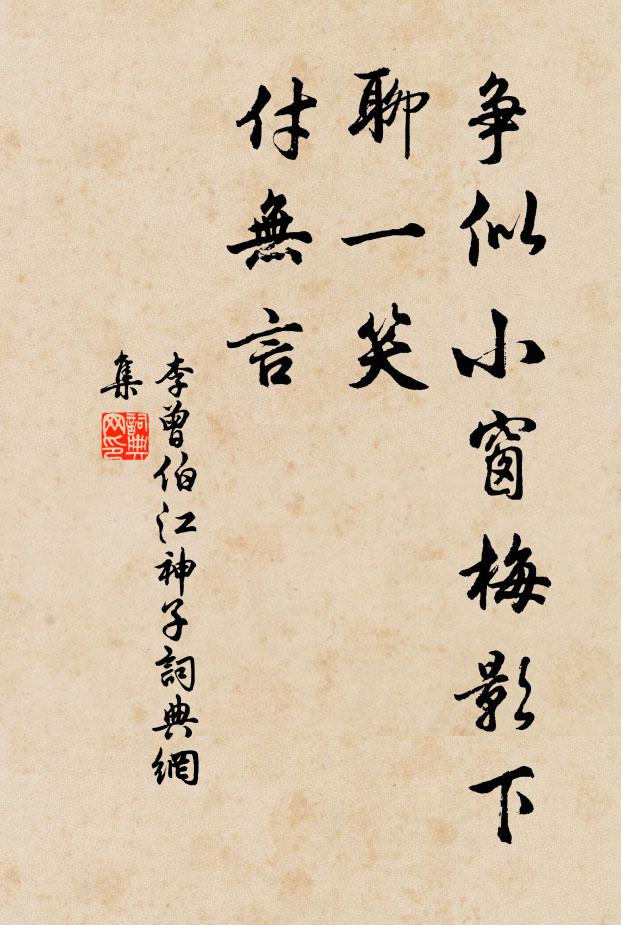 争似小窗梅影下
聊一笑
付無言
李曾伯江神子詞典網
集
詞典
网印